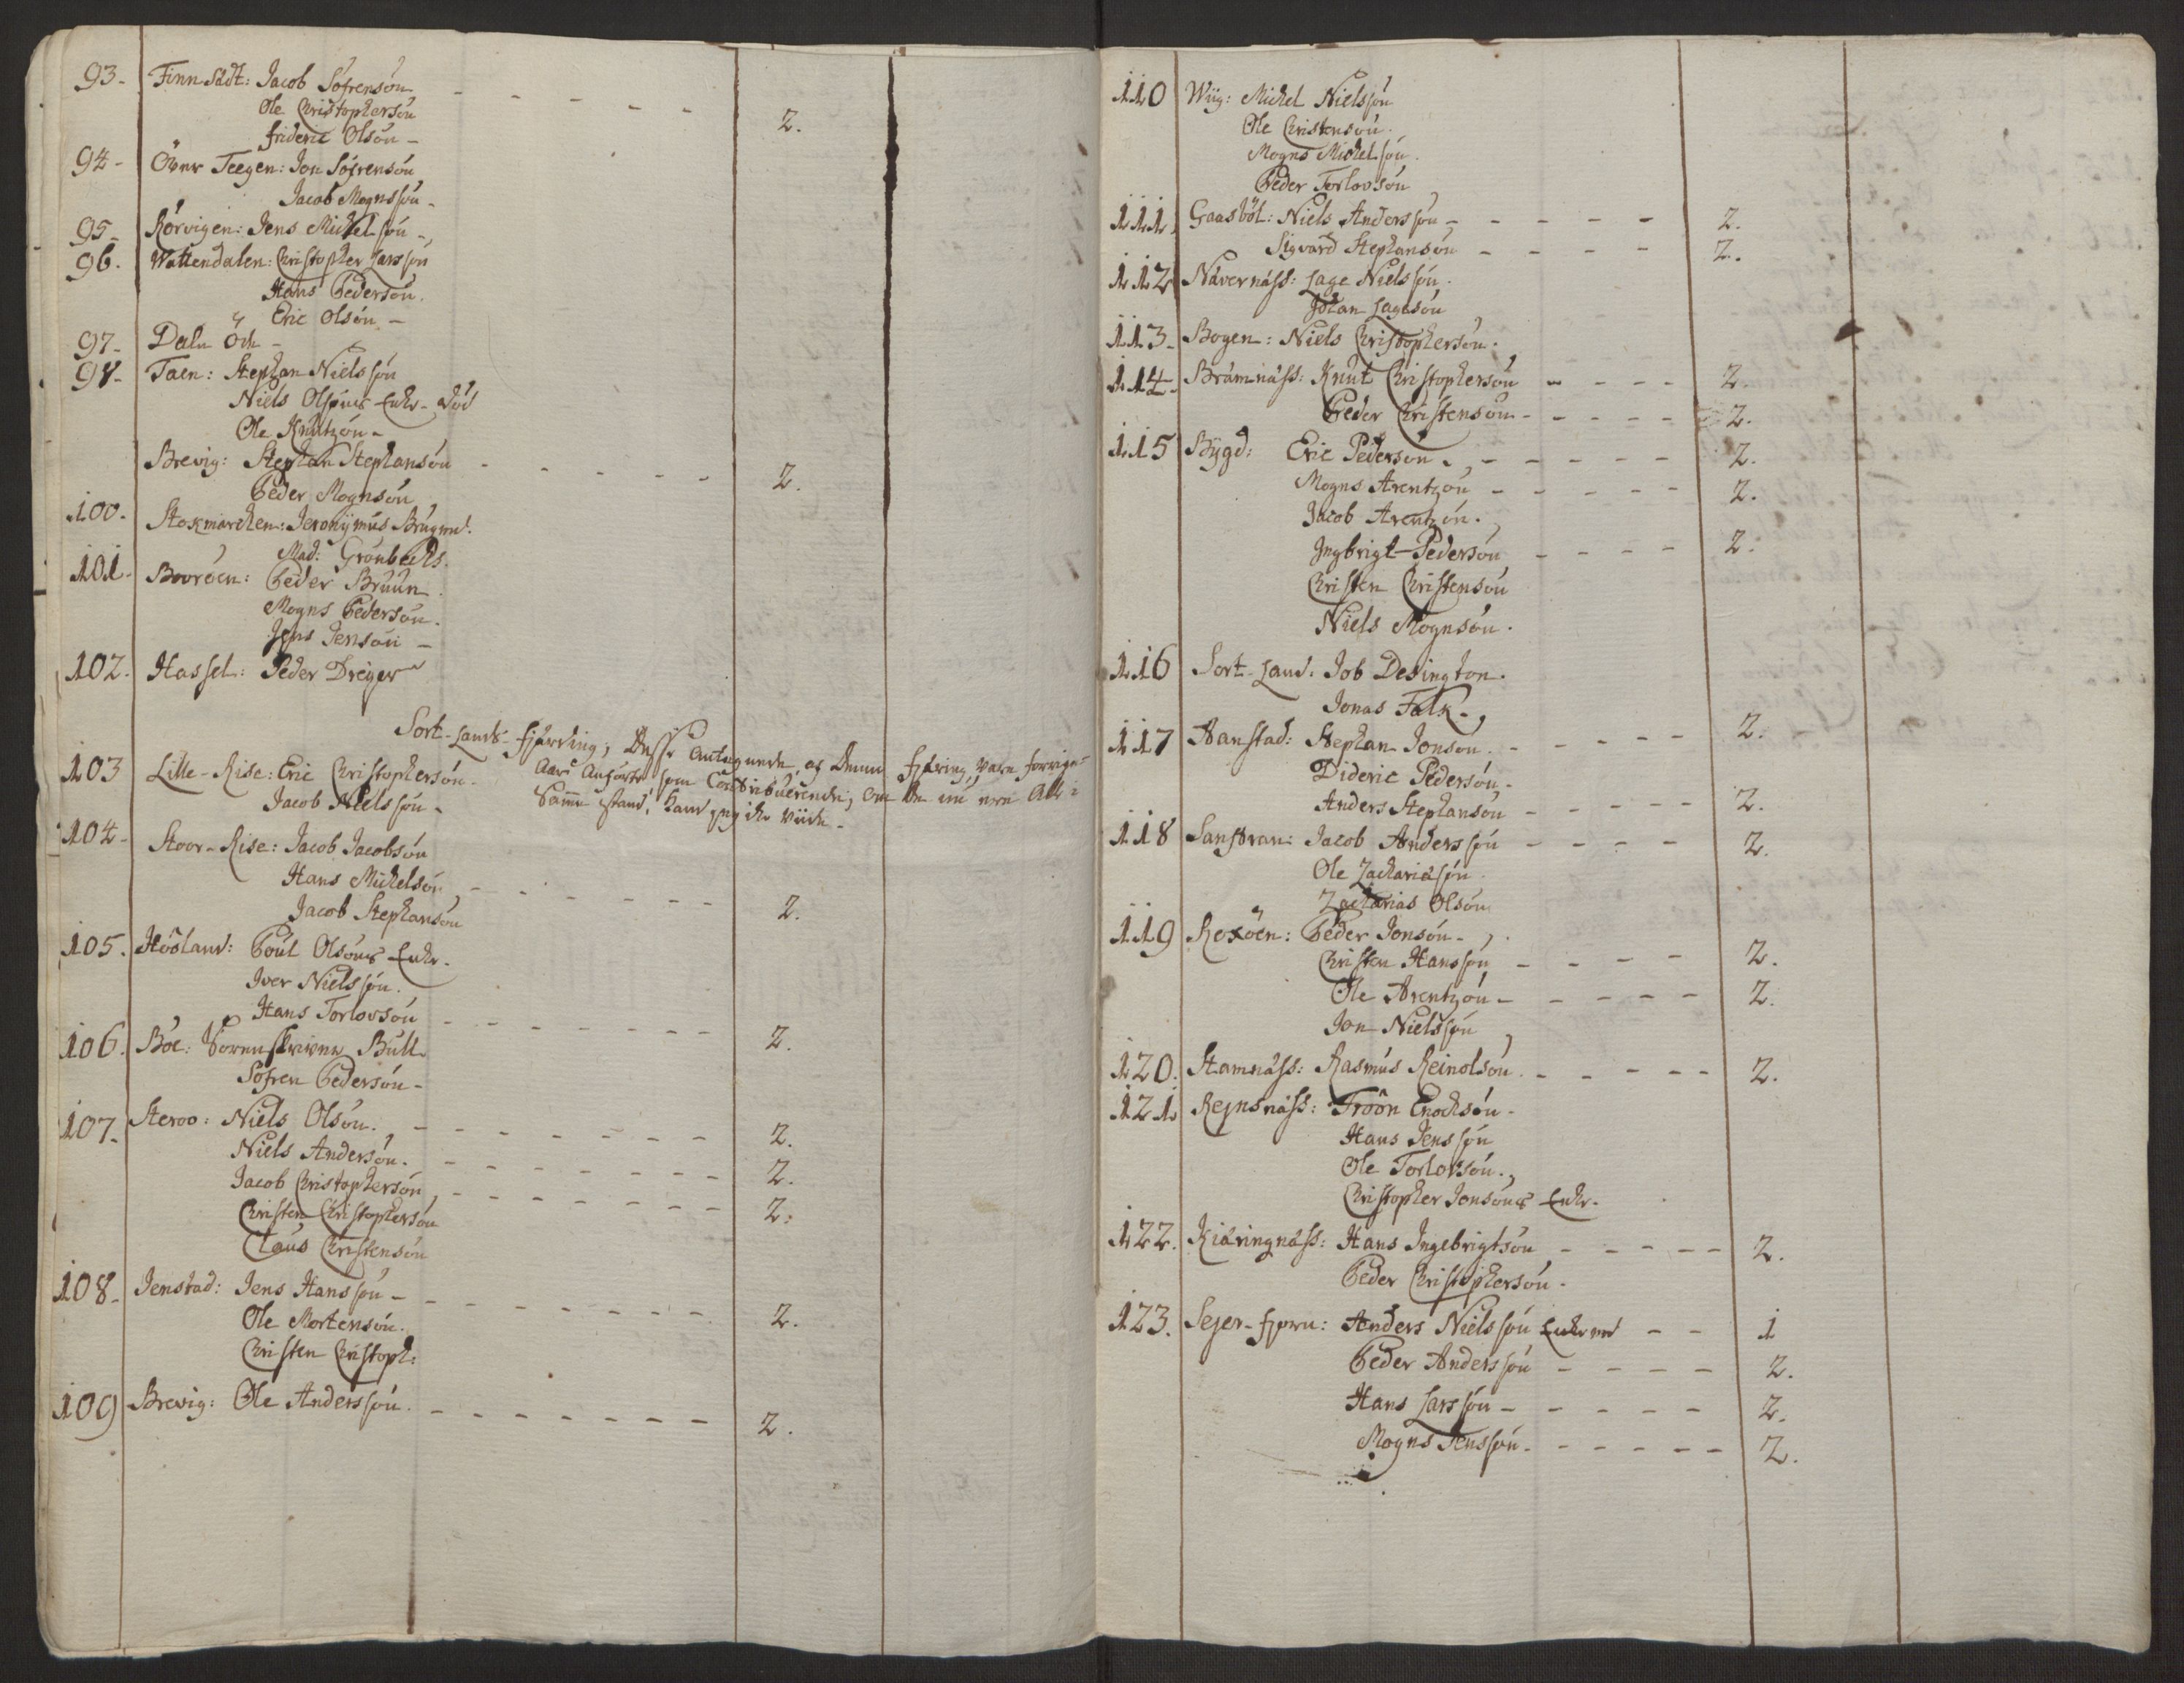 93- Finnsådt: Jacob Söfrensön - - - - - - 2.
Ole Christophersön
frideric Olsön -
94- Över Teegen: Jon Söfrensön
Jacob Mognssön -
95- Rörvigen: Jens Michelsön -
96. Wattendalen: Christopher Larssön
Hans Pedersön.
Eric Olsön -
97- Daln
98- Taen: Stephan Nielssön
Niels Olsöns Enke-
Ole Knutzön -
Brevig: Stephan Stephansön - - - - - - 2.
Peder Mognsön
100. Stokmarchen: Jeronÿmus
Mad: Grönbechs.
101- Boröen: Peder Bruun
Mogns Pedersön.
Jens Jensön -
102. Hassel: Peder Dreÿer
Sort-Lands-fjærding, Disse Antegnede af Denne fjæring vare forrige
Aars Anförte som Contribuerende, om de nu ere Alle i
Samme stand, kand jeg ike viide -
103 Lille-Rise: Eric Christophersön.
Jacob Nielssön -
104- Stoor-Rise: Jacob Jacobsön
Hans Michelsön - - - - - - 2.
Jacob Stephansön
105. Höÿland: Poul Olsöns Enke.
Iver Nielssön.
Hans Torlovsön - - - - - - - 2.
106. Böe: Sorenskriver Bull
Söfren Pedersön -
107- Steroo: Niels Olsön. - - - - - - - 2.
Niels Andersön. - - - - - - - 2.
Jacob Christophersön - - - - - - - 2.
Christen Christophersön
Claus Christensön
108- Jenstad: Jens Hanssön - - - - - - - - 2.
Ole Mortensön.
Christen Christoph:
109 Brevig: Ole Anderssön. - - - - - - - 2.
110 Wiig: Michel Nielssön
Ole Christensön.
Mogns Michelsön.
Peder Torlovsön
111. Gaasböl: Niels Anderssön - - - - - 2.
Sigvard Stephansön - - - - 2.
112 Nävernäss: Lage Nielssön.
Johan Lagesön
113- Bogen: Niels Christophersön.
114- Brämnäss: Knut Christophersön - - - - 2.
Peder Christensön - - - - - 2.
115 Bÿgd: Eric Pedersön - - - - - - 2.
Mogns Arentzön - - - - - 2.
Jacob Arentzön.
Jngbrigt Pedersön - - - - 2.
Christen Christensön
Niels Mognsön.
116 Sort-Land: Job Desington.
Jonas Falk -
117 Aanstad: Stephan Jonsön. - - - - - 2.
Dideric Pedersön -
Anders Stephansön - - - - - 2.
118 Sanstran: Jacob Anderssön - - - - 2.
Ole Zachariasön.
Zacharias Olsön
119 Roxöen: Peder Jonsön -
Christen Hanssön - - - - 2.
Ole Arentzön - - - - - 2.
Jon Nielssön
120. Stamnäss: Rasmus Reinolsön. - - - - - 2.
121 Rejnsnäss: Tröön Enochsön -
Hans Jenssön
Ole Torlovsön.
Christopher Jonsöns Enke.
122. Kiäringnäss: Hans Ingebrigtsön - - - - - 2.
Peder Christophersön.
123. Sejer-fjorn: Anders Nielssön - - 1
Peder Anderssön - - - - 2.
Hans Larssön - - - - - 2.
Mogns Jenssön - - - - - - 2.